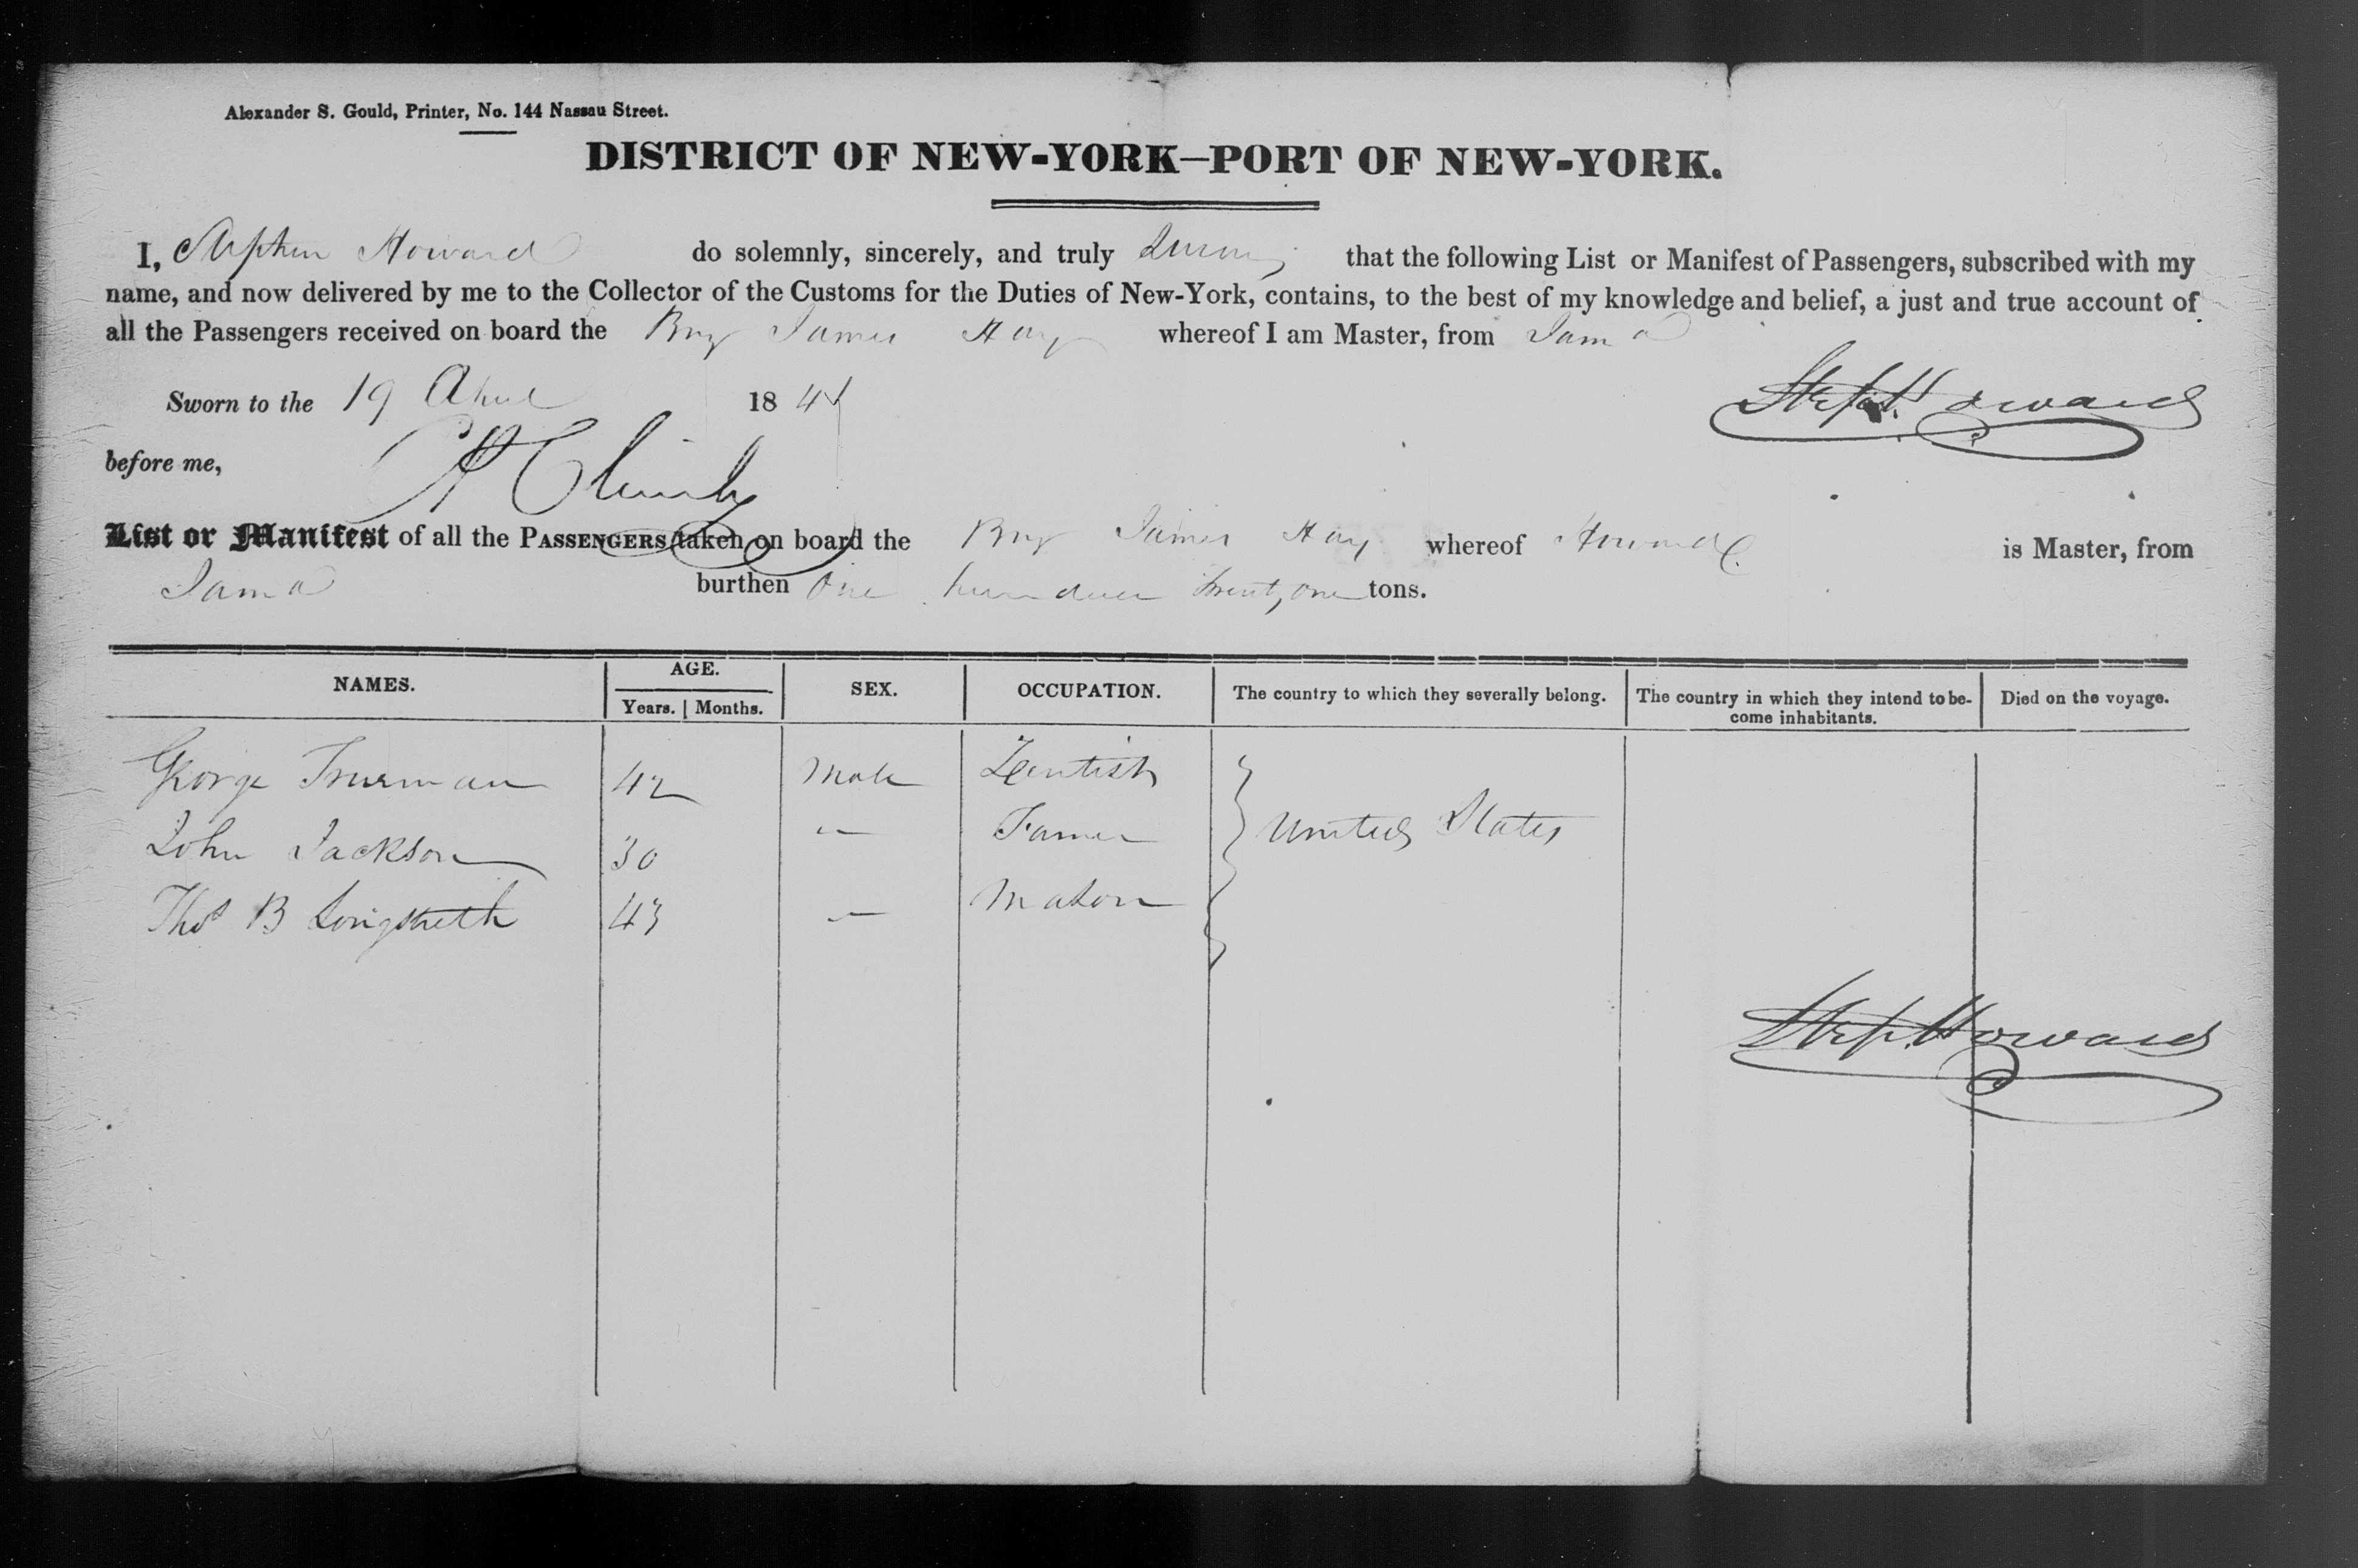 Alexander S. Gould, Printer, No. 144 Nassau Street.
DISTRICT OF NEW-YORK—PORT OF NEW-YORK.
I, Stephen Howard do solemnly, sincerely, and truly swear that the following List or Manifest of Passengers, subscribed with my
name, and now delivered by me to the Collector of the Customs for the Duties of New-York, contains, to the best of my knowledge and belief, a just and true account of
all the Passengers received on board the Brig James Hay whereof I am Master, from Jama
Sworn to the 19 April 1841 Steph. Howard
before me,
List or Manifest of all the PASSENGERS taken on board the Brig James Hay whereof Howard is Master, from
Jama burthen One hundred twenty one tons.
NAMES. AGE. SEX. OCCUPATION. The country to which they severally belong. The country in which they intend to be- Died on the voyage.
Years. Months. come inhabitants.
George Truman 42 Male Dentist
John Jackson 30 — Farmer United States
Thos B Longstreth 43 — Mason
Steph. Howard